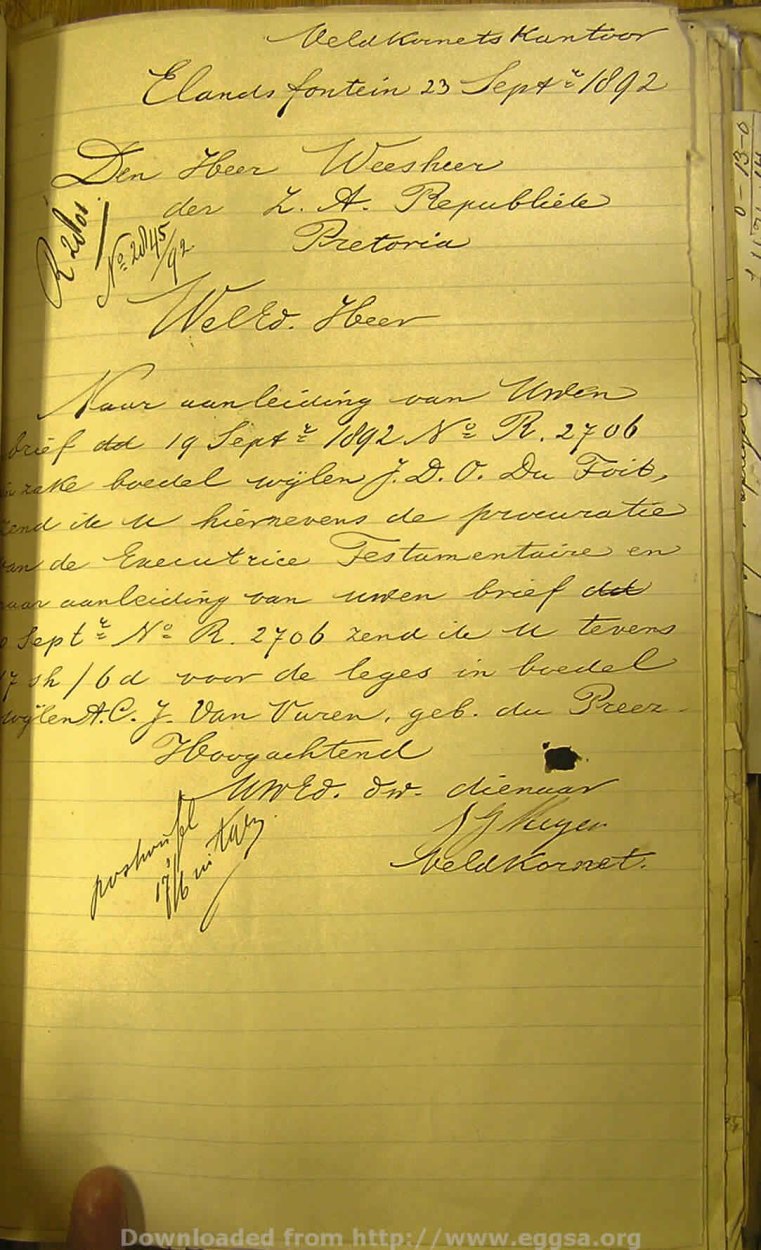 Veldkornets Kantoor
Elandsfontein 23 Septr 1892
Den Heer Weesheer
der Z. A. Republiek
Pretoria
No 2845/92
WelEd. Heer
Naar aanleiding van Uwen
brief dd 19 Septr 1892 No R. 2706
in zake boedel wijlen J. D. O. Du Toit,
zend ik U hiernevens de procuratie
van de Executrice Testamentaire en
naar aanleiding van uwen brief dd
Septr No R. 2706 zend ik U tevens
17 sh / 6d voor de leges in boedel
wijlen A. C. J. Van Vuren, geb. du Preez
Hoogachtend
UWEd. dw. dienaar
Meyer
Veldkornet.
postwissel
17/6
0-13-0
Downloaded from http://www.eggsa.org